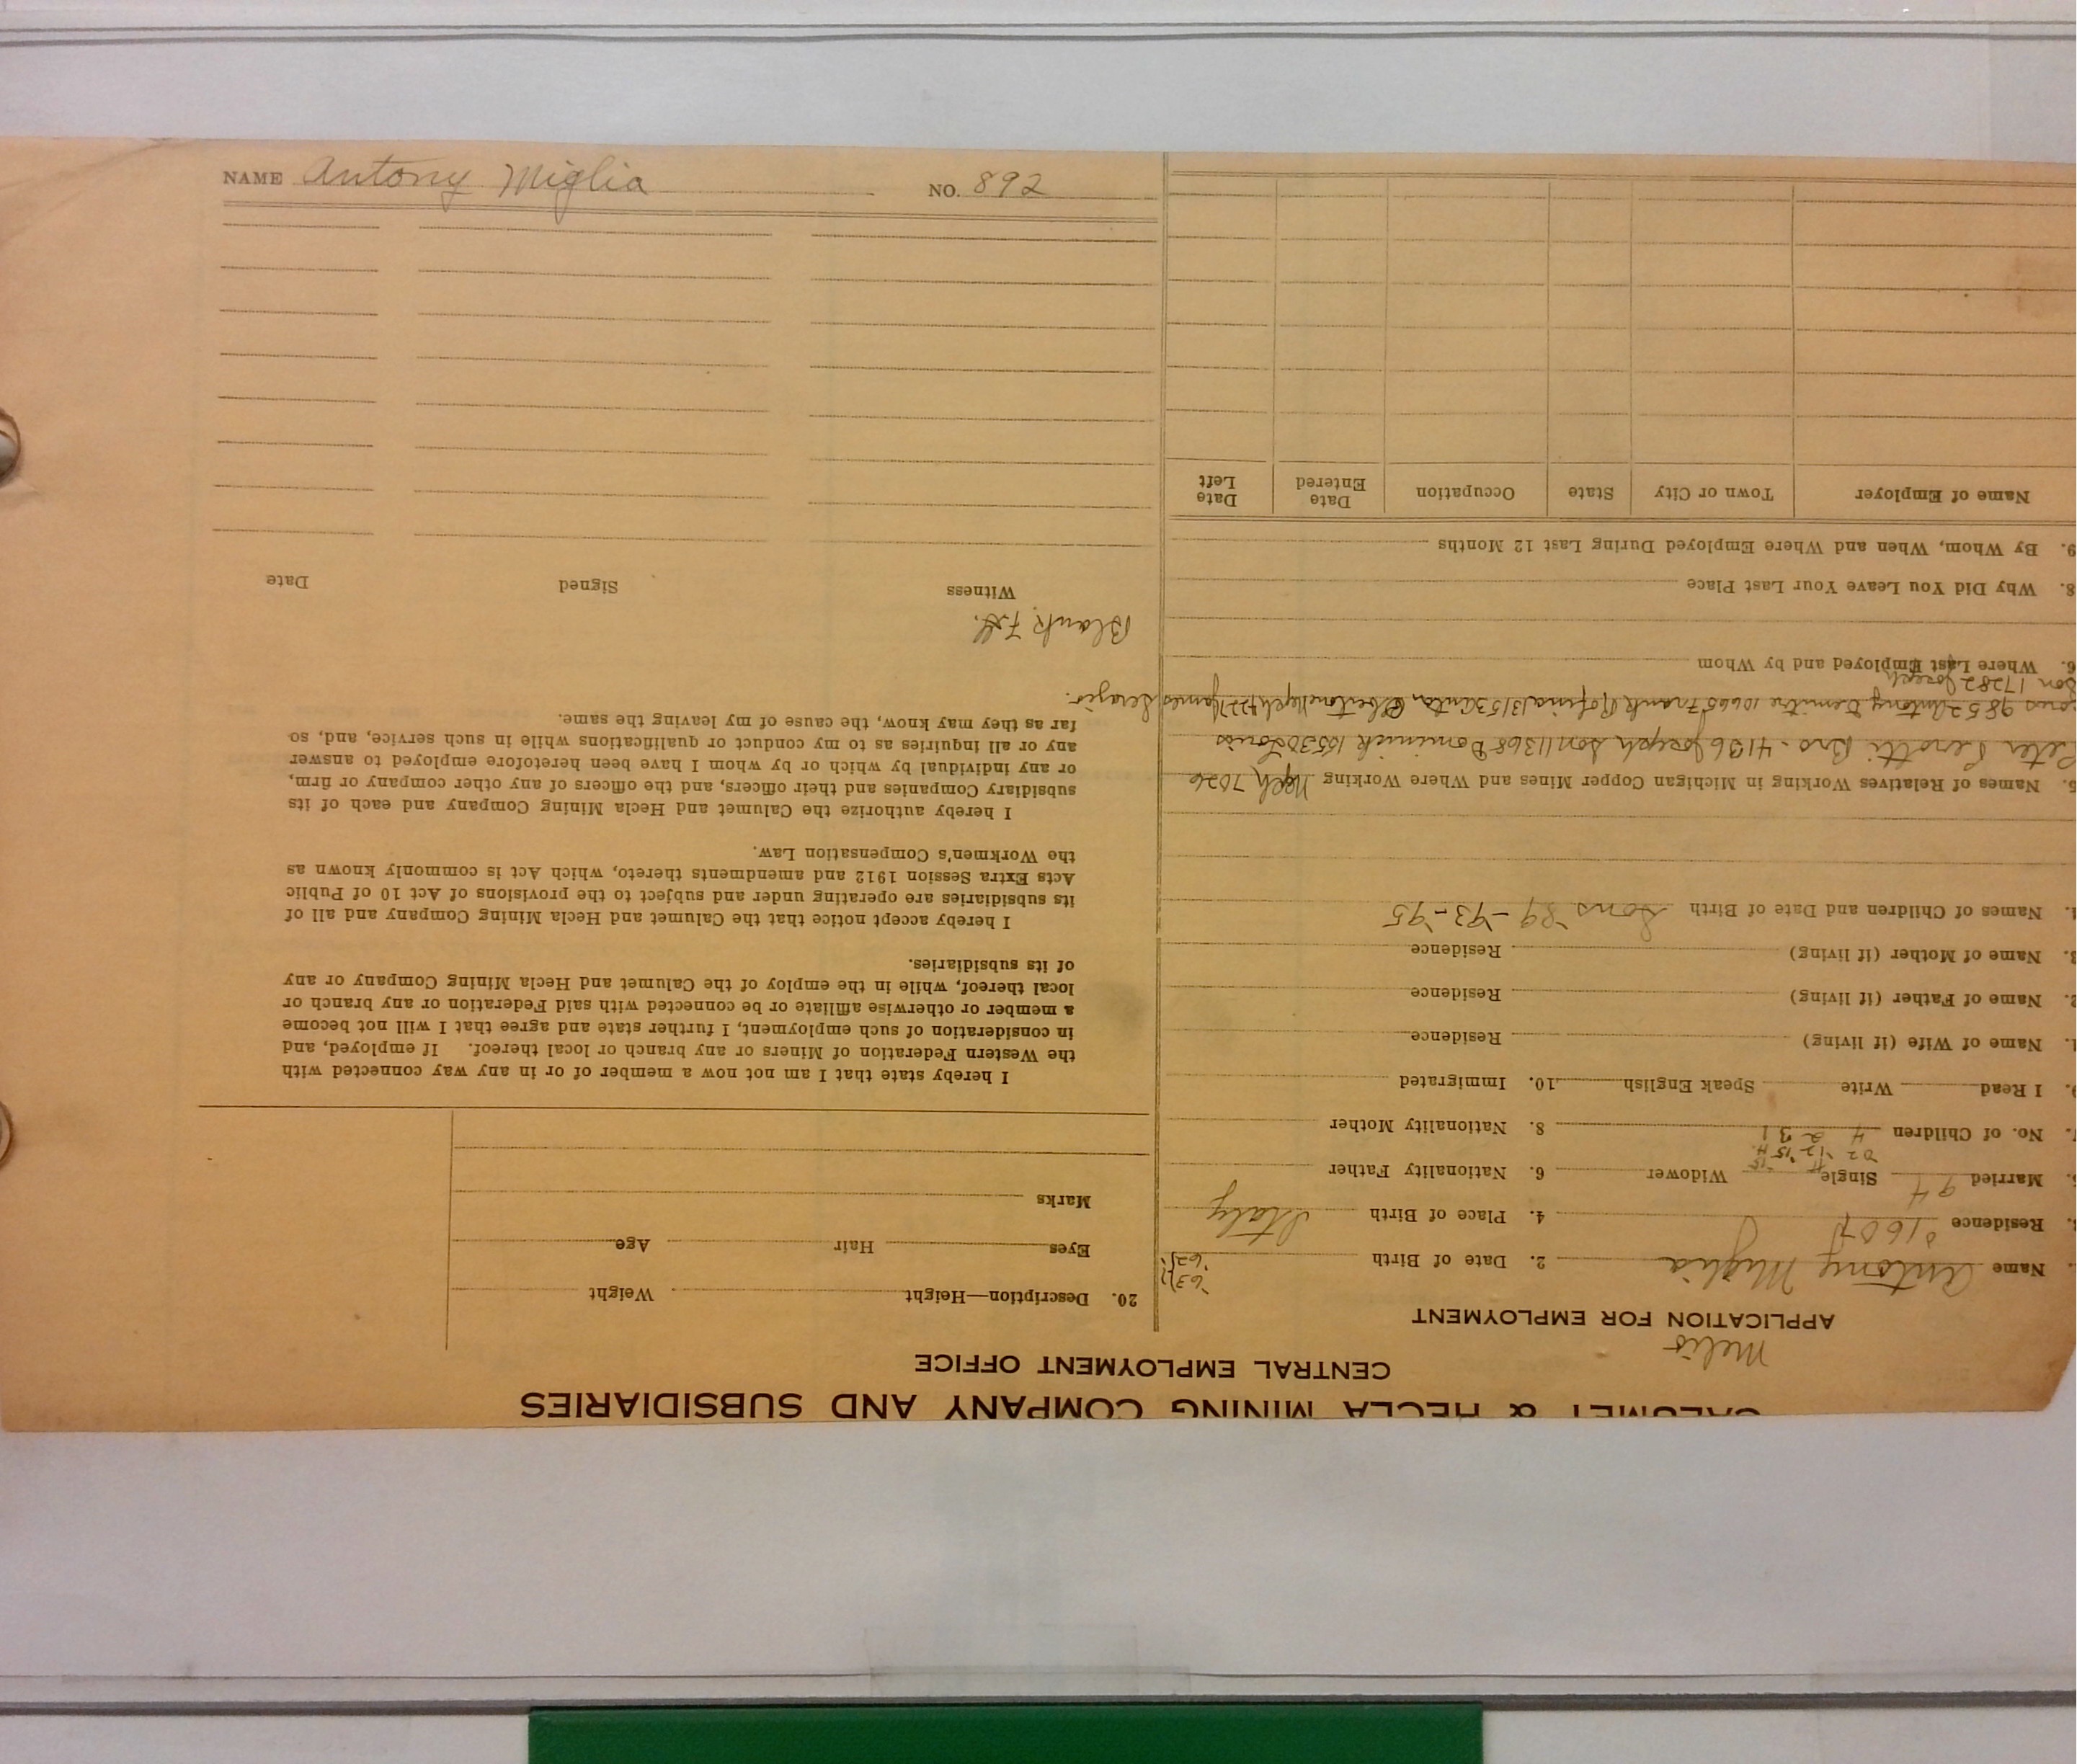 NAME Antony Miglia NO. 892
CALUMET & HECLA MINING COMPANY AND SUBSIDIARIES
CENTRAL EMPLOYMENT OFFICE
APPLICATION FOR EMPLOYMENT
Name Antony Miglia 2. Date of Birth '63 '62
Residence 4. Place of Birth Italy
Married Single Widower 6. Nationality Father
No. of Children 8. Nationality Mother
I Read Write Speak English 10. Immigrated
Name of Wife (if living) Residence
Name of Father (if living) Residence
Name of Mother (if living) Residence
Names of Children and Date of Birth Sons '89 - '93 - '95
Names of Relatives Working in Michigan Copper Mines and Where Working 7026
Bro. 4136 Joseph son 11368 Dominick 16530 Louis
9852 Antony 10665 Frank 13153 James
Son 17282 Joseph
6. Where Last Employed and by Whom
8. Why Did You Leave Your Last Place
9. By Whom, When and Where Employed During Last 12 Months
Name of Employer Town or City State Occupation Date Entered Date Left
20. Description—Height Weight
Eyes Hair Age
Marks
I hereby state that I am not now a member of or in any way connected with
the Western Federation of Miners or any branch or local thereof. If employed, and
in consideration of such employment, I further state and agree that I will not become
a member or otherwise affiliate or be connected with said Federation or any branch or
local thereof, while in the employ of the Calumet and Hecla Mining Company or any
of its subsidiaries.
I hereby accept notice that the Calumet and Hecla Mining Company and all of
its subsidiaries are operating under and subject to the provisions of Act 10 of Public
Acts Extra Session 1912 and amendments thereto, which Act is commonly known as
the Workmen's Compensation Law.
I hereby authorize the Calumet and Hecla Mining Company and each of its
subsidiary Companies and their officers, and the officers of any other company or firm,
or any individual by which or by whom I have been heretofore employed to answer
any or all inquiries as to my conduct or qualifications while in such service, and, so
far as they may know, the cause of my leaving the same.
Blank
Witness Signed Date